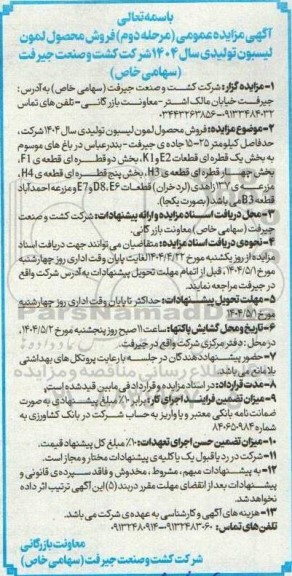 باسمه تعالی
آگهی مزایده عمومی (مرحله دوم) فروش محصول لمون
لیسبون تولیدی سال ۱۴۰۴ شرکت کشت و صنعت جیرفت
(سهامی خاص)
۱- مزایده گزار: شرکت کشت و صنعت جیرفت (سهامی خاص) به آدرس:
جیرفت خیابان مالک اشتر - معاونت بازرگانی - تلفن های تماس
۰۹۱۳۳۴۸۴۰۳۲-۰۳۴۴۳۲۶۳۸۵۶
۲- موضوع مزایده: فروش محصول لمون لیسبون تولیدی سال ۱۴۰۴ شرکت،
حدفاصل کیلومتر ۲۵-۱۵ جاده ی جیرفت - بندرعباس در باغ های موسوم
به بخش یک قطره ای قطعات E2 و K1، بخش دو قطره ای قطعه ی F1،
بخش چهار قطره ای قطعه ی H3، بخش پنج قطره ای قطعه ی H4،
مزرعه ی ۱۳۷ زاهدی (لردخران) قطعات D8، E6 و E7 و مزرعه احمدآباد
قطعه B3 می باشد (بصورت یکجا).
۳- محل دریافت اسناد مزایده و ارائه پیشنهادات: شرکت کشت و صنعت
جیرفت (سهامی خاص) معاونت بازرگانی.
۴- نحوه ی دریافت اسناد مزایده: متقاضیان می توانند جهت دریافت اسناد
مزایده از روز یکشنبه مورخ ۱۴۰۴/۴/۲۲ لغایت پایان وقت اداری روز چهارشنبه
مورخ ۱۴۰۴/۵/۱، قبل از اتمام مهلت تحویل پیشنهادات به آدرس شرکت واقع
در جیرفت مراجعه نمایند.
۵- مهلت تحویل پیشنهادات: حداکثر تا پایان وقت اداری روز چهارشنبه
مورخ ۱۴۰۴/۵/۱
۶- تاریخ و محل گشایش پاکتها: ساعت ۱۱ صبح روز پنجشنبه مورخ ۱۴۰۴/۵/۲،
در محل: دفتر مرکزی شرکت واقع در جیرفت.
۷- حضور پیشنهاد دهندگان در جلسه با رعایت پروتکل های بهداشتی
بلامانع می باشد.
۸- مدت قرارداد: در اسناد مزایده و قرارداد فی مابین قید شده است.
۹- میزان تضمین فرایند اجرای کار: برابر ۱۰٪ مبلغ پیشنهادی به صورت
ضمانت نامه بانکی معتبر و یا واریز به حساب شرکت در بانک کشاورزی به
شماره ۸۴۰۶۵۰۹۸۴
۱۰- میزان تضمین حسن اجرای تعهدات: ۱۰٪ مبلغ کل پیشنهاد قیمت.
۱۱- شرکت در رد یا قبول یک یا کلیه ی پیشنهادات مختار و مجاز است.
۱۲- به پیشنهادات مبهم، مشروط، مخدوش و فاقد سپرده ی قانونی و
پیشنهادات بعد از انقضای مهلت مقرر در بند (۵) این آگهی ترتیب اثر داده
نخواهد شد.
۱۳- هزینه های آگهی و کارشناسی به عهده ی شرکت می باشد.
تلفن های تماس: ۰۹۱۳۲۴۸۳۰۶۰-۰۹۱۳۲۴۸۰۹۱۴
معاونت بازرگانی
شرکت کشت و صنعت جیرفت (سهامی خاص)